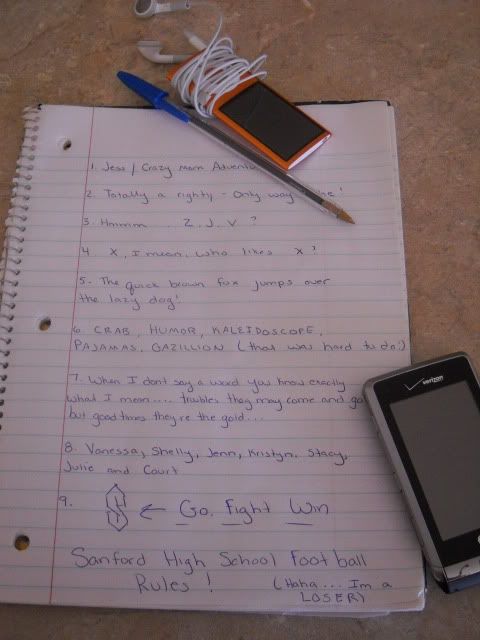 1. Jess / Crazy mom
2. Totally a righty - Only way !
3. Hmmm . Z, J, V ?
4 X, I mean, who likes X ?
5. The quick brown fox jumps over
the lazy dog!
6. CRAB, HUMOR, KALEIDOSCOPE,
PAJAMAS, GAZILLION (that was hard to do!)
7. When I dont say a word you know exactly
what I mean.... troubles they may come and go
but good times they're the gold...
8. Vanessa, Shelly, Jenn, Kristyn, Stacy,
Julie and Court
9. ← Go, Fight Win
Sanford High School Football
Rules ! (Haha ... Im a
LOSER)
verizon